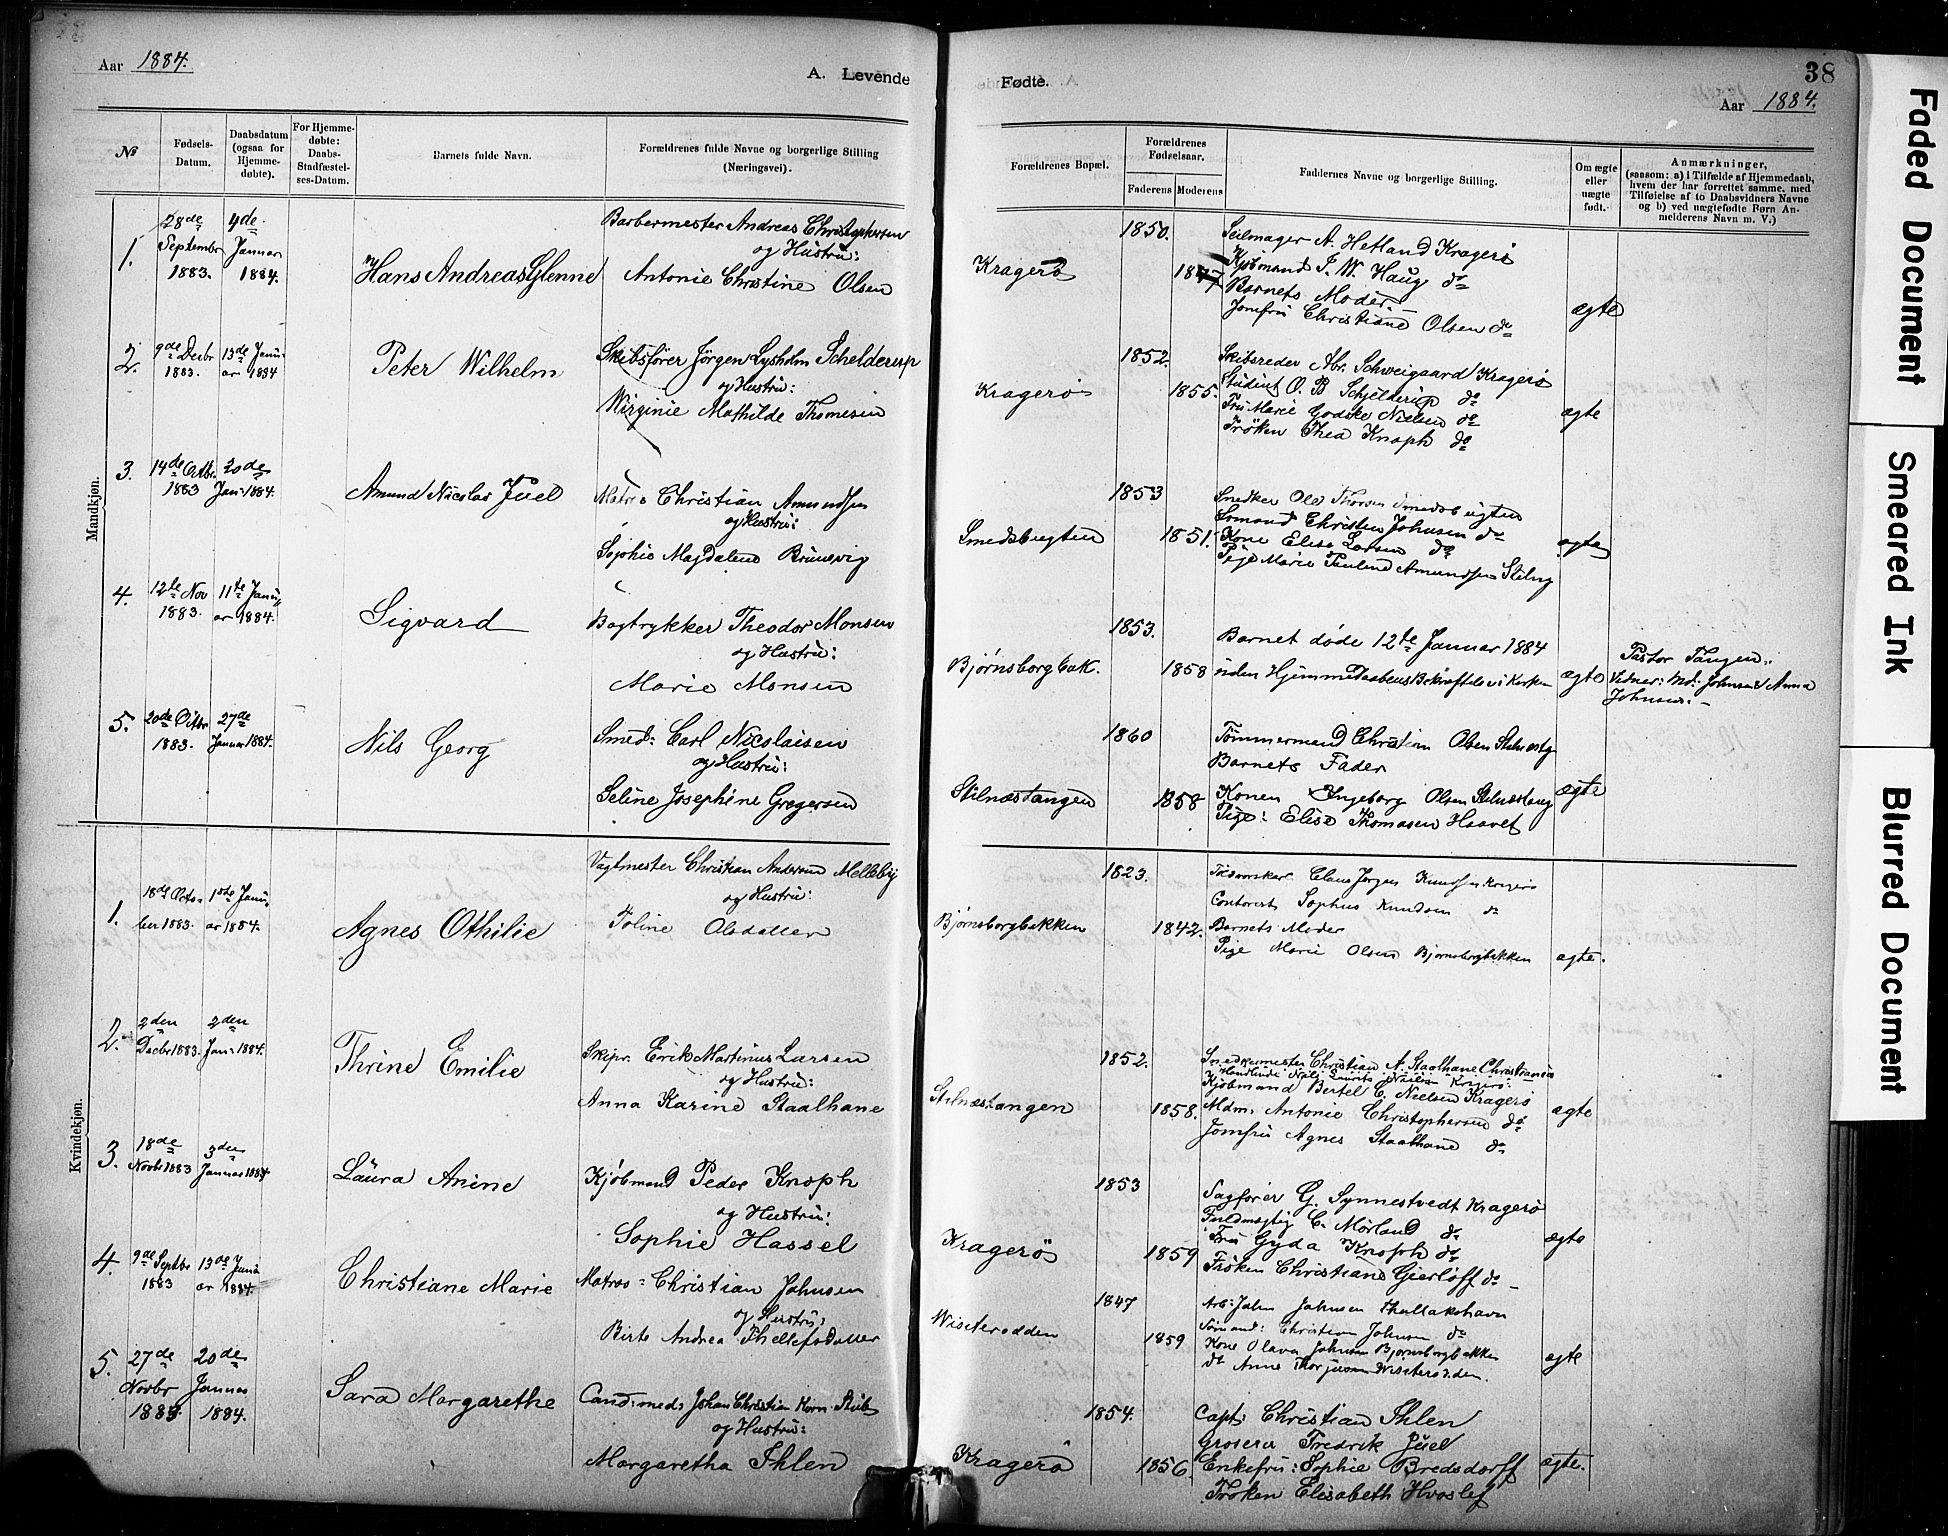 Aar 1884.
A. Levende
Fødte.
38
Aar 1884.
№
Fødsels-
Datum.
Daabsdatum
(ogsaa for
Hjemme-
døbte).
For Hjemme-
døbte:
Daabs-
Stadfæstel-
ses-Datum.
Barnets fulde Navn.
Forældrenes fulde Navne og borgerlige Stilling
(Næringsvei).
Forældrenes Bopæl.
Forældrenes
Fødselsaar.
Faderens
Moderens
Faddernes Navne og borgerlige Stilling.
Om ægte
eller
uægte
født.
Anmærkninger,
(saasom: a) i Tilfælde af Hjemmedaab,
hvem der har forrettet samme, med
Tilføielse af to Daabsvidners Navne
og b) ved uægtefødte Børn An-
melderens Navn m. V.)
Mandkjøn.
1.
28de
Septembr
1883.
4de
Januar
1884.
Hans Andreas Glenne
Barbermester Andreas Christophersen
og Hustru:
Antonie Christine Olsen
Kragerø
1850.
1847
Seilmager A. Hetland Kragerø
Kjøbmand J. W. Haug do
Barnets Moder
Jomfru Christiane Olsen do
ægte
2.
9de Decbr
1883.
13de Janu-
ar 1884
Peter Wilhelm
Skibsfører Jørgen Lysholm Schelderup
og Hustru:
Wirginie Mathilde Thomesen
Kragerø
1852.
1855.
Skibsreder Abr. Schweigaard Kragerø
Student O. B Schjelderup do
Fru Marie Godske Nielsen do
Frøken Thea Knoph do
ægte
3.
14de Octbr
1883
20de
Jan: 1884.
Amund Nicolai Juel
Matros Christian Amundsen
og Hustru:
Sophie Magdalene Brunvig
Smedsbugten
1853
1851.
Snedker Ole Thorsen Smedsbugten
Sømand Christen Johnsen do
Kone Elise Larsen do
Pige Marie Pauline Amundsen Stilng
ægte
4.
12te Nov
1883.
11te Janu
ar 1884.
Sigvard
Bogtrykker Theodor Monsen
og Hustru:
Marie Monsen
Bjørnsborgbak.
1853.
1858
Barnet døde 12te Januar 1884
uden Hjemmedaabens Bekræftelse i Kirken
ægte
Pastor Tangen.
Vidner: Md: Johnsen & Anna
Johnsen.
5.
20de Octbr
1883.
27de
Januar 1884.
Nils Georg
Smed: Carl Nicolaisen
og Hustru:
Seline Josephine Gregersen
Stilnæstangen
1860
1858
Tømmermand Christian Olsen Stilnæstg
Barnets Fader
Konen Ingeborg Olsen Stilnæstang
Pige: Elise Thomasen Haavet
ægte
Kvindekjøn.
1.
18de Octo-
ber 1883.
1ste Janu
ar 1884.
Agnes Othilie
Vagtmester Christian Andersen Melleby
og Hustru:
Toline Olsdatter
Bjørnsborgbakken
1823.
1842.
Claus Jørgen Knudsen Kragerø
Contorist Sophus Knudsen do
Barnets Moder
Pige Marie Olsen Bjørnsborgbakken
ægte.
2.
2den
Decbr 1883.
2den
Jan: 1884.
Thrine Emilie
Skipr. Erik Martinus Larsen
og Hustru:
Anna Karine Staalhane
Stilnæstangen
1852.
1858.
Snedkermester Christian A. Staalhane Christiania
Handlende Nils Laurits Nielsen Kragerø:
Kjøbmand Bertel C. Nielsen Kragerø
Mdm: Antonie Christophersen do
Jomfru Agnes Staalhane do
ægte
3.
18de
Novbr 1883
3den
Januar 1884
Laura Anine
Kjøbmand Peder Knoph
og Hustru:
Sophie Hassel
Kragerø
1853
1859
Sagfører G. Synnestvedt Kragerø
Fuldmægtig C. Mørland do
Fru Gyda Knoph do
Frøken Christiane Gierløff do
ægte
4.
9de Septbr
1883
13de Janu
ar 1884.
Christiane Marie
Matros: Christian Johnsen
og Hustru:
Birte Andrea Thellefsdatter
Wisterodden
1847
1859
Arb: John Johnsen Thallakshavn
Sømand: Christian Johnsen do
Kone Olava Johnsen Bjørnsborgbakken
do Anne Thorjusen Wisterodden.
ægte
5.
27de
Novbr
1883.
20de
Januar
1884.
Sara Margarethe
Cand: med: Johan Christian Korn
og Hustru:
Margaretha Ihlen
Kragerø
1854.
1856.
Capt: Christian Ihlen
Groserer Fredrik Juel
Enkefru: Sophie Bredsdorff
Frøken Elisabeth Hvoslef
ægte.
Faded Document
Smeared Ink
Blurred Document